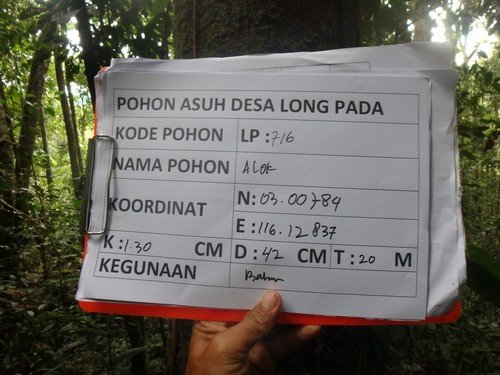 POHON ASUH DESA LONG PADA
KODE POHON LP : 716
NAMA POHON ALOK
KOORDINAT N: 03.00784
E: 116.12837
K : 1.30 CM D : 42 CM T : 20 M
KEGUNAAN